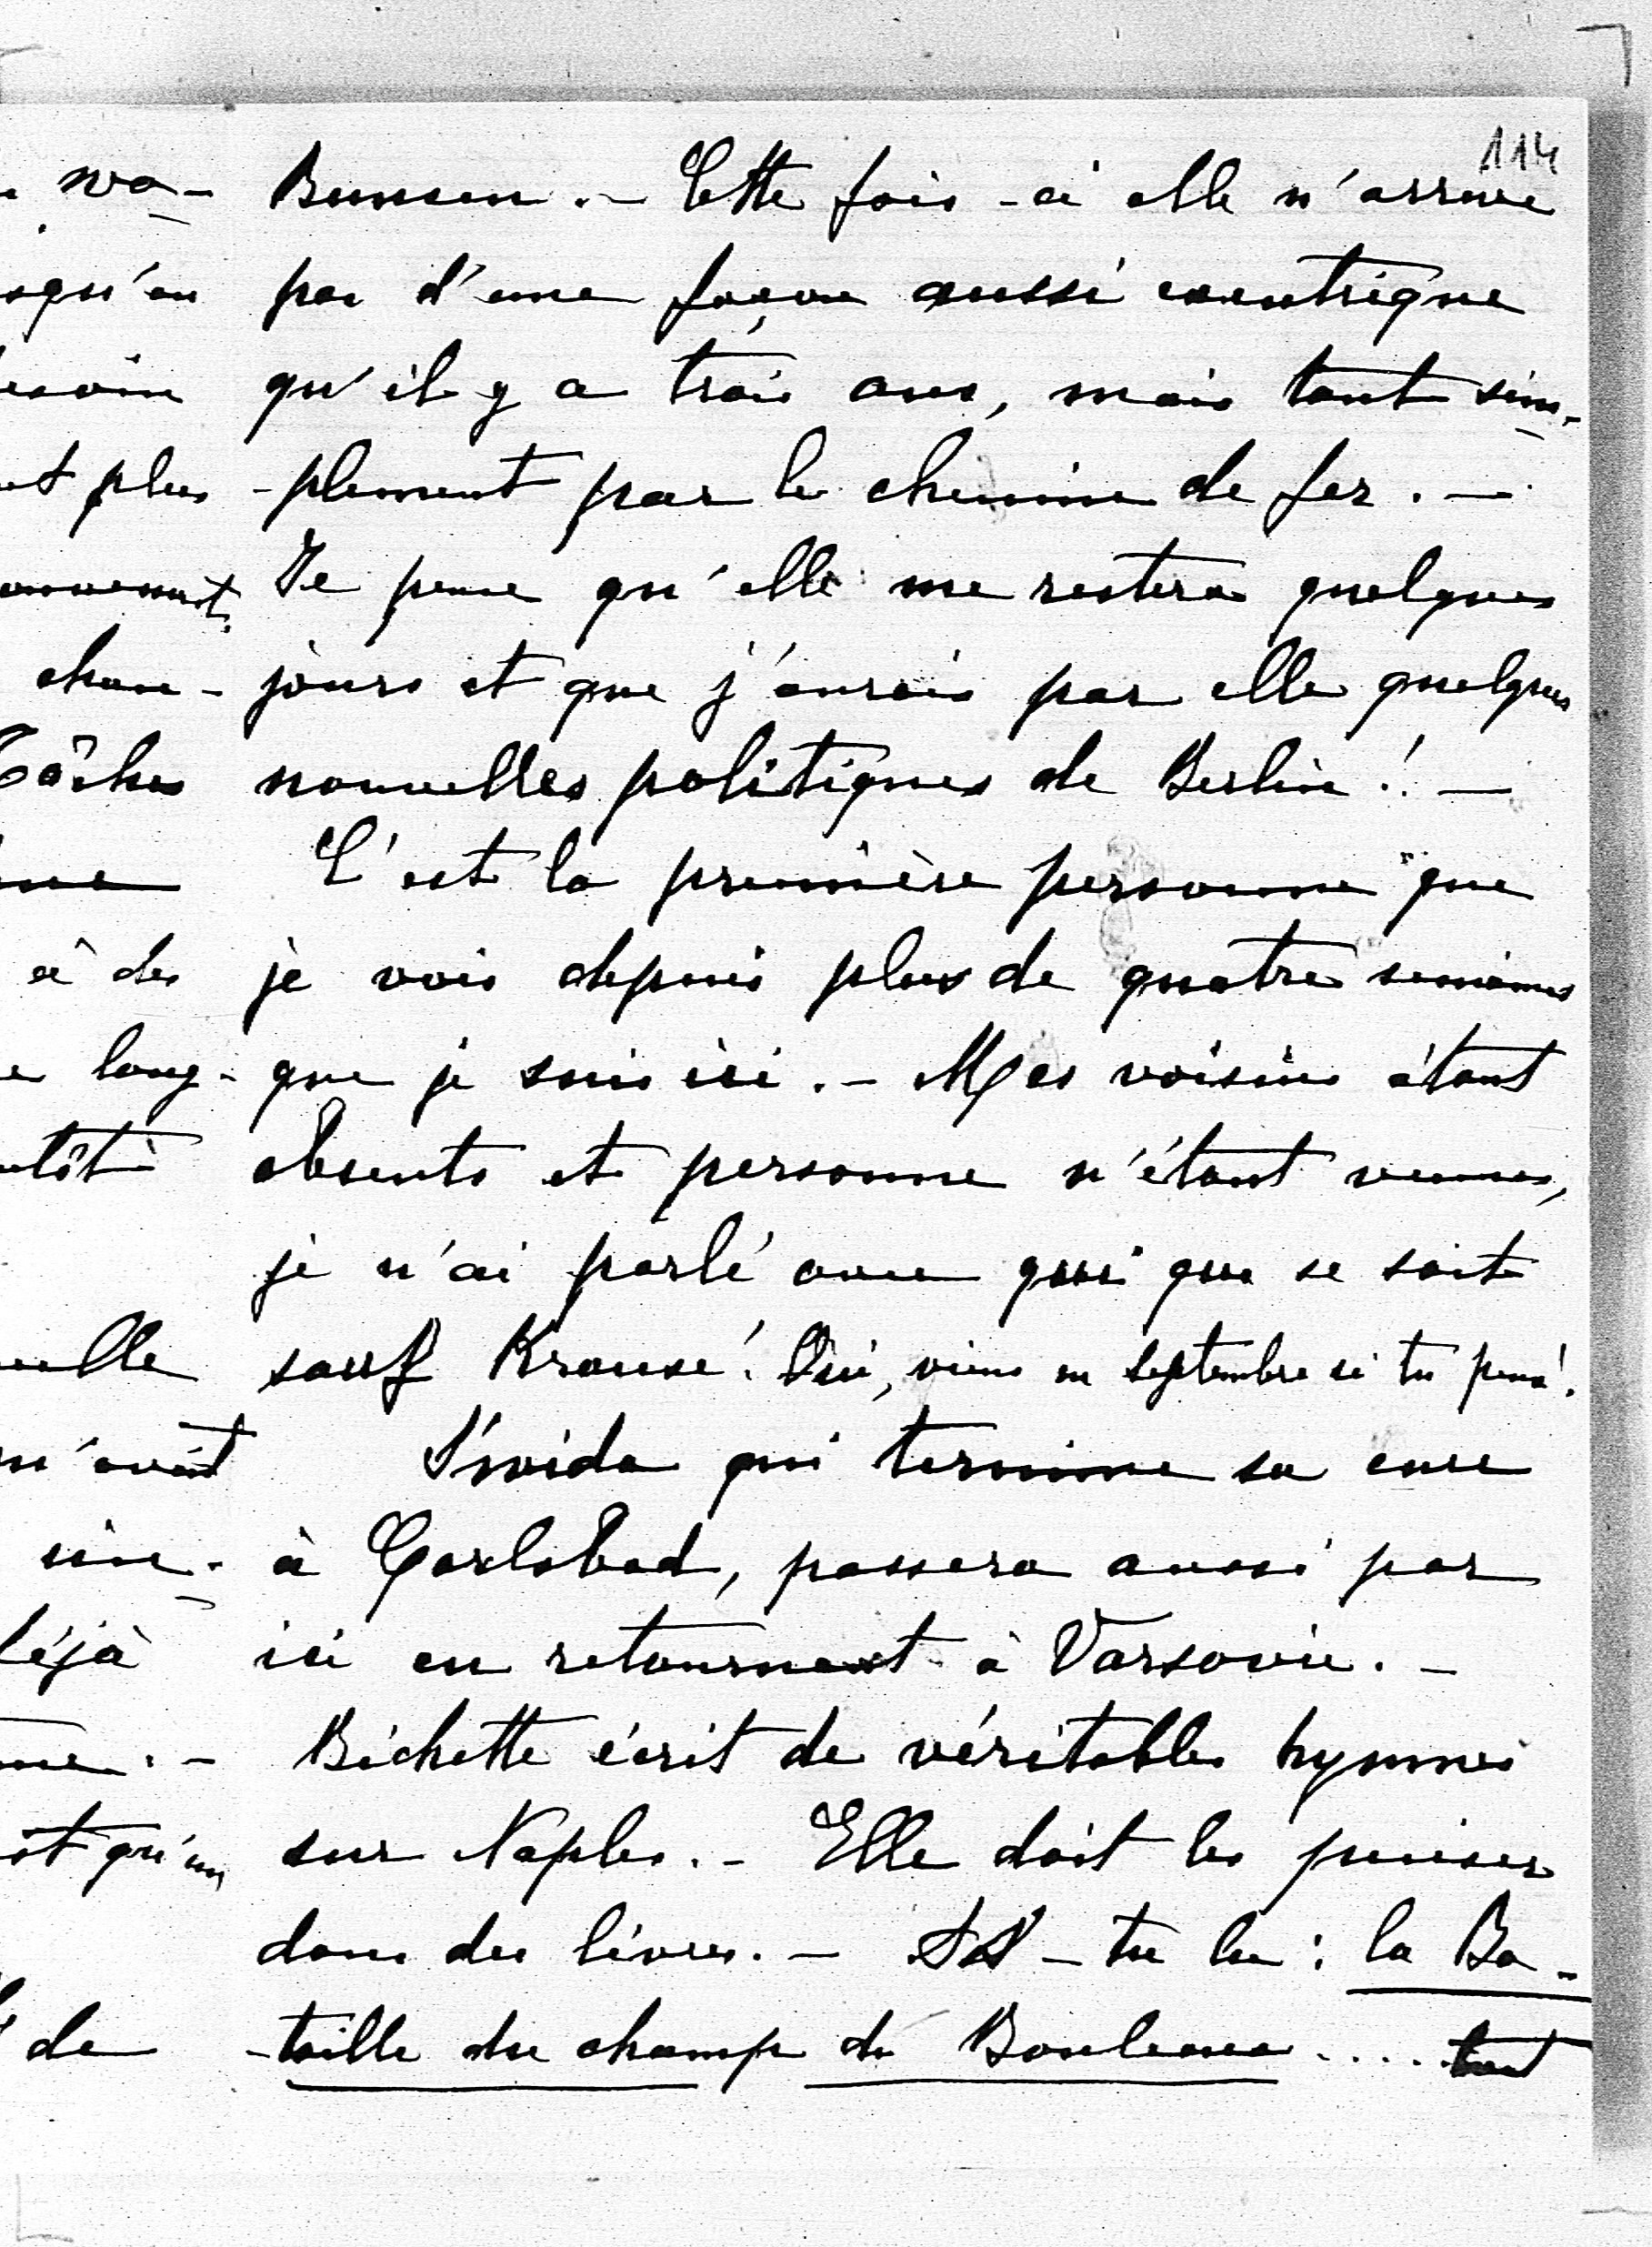 114
Bunsen. - Cette fois-ci elle n'arrive
pas d'une façon aussi exentrique
qu'il y a trois ans, mais tout sim-
-plement par le chemin de fer. -
Je pense qu'elle me restera quelques
jours et que j'aurais par elle quelques
nouvelles politiques de Berlin! -
C'est la première personne que
je vois depuis plus de quatre semaines
que je suis ici. - Mes voisins étant
absents et personne n'étant venus,
je n'ai parlé avec qui que se soit
sauf Krause! Oui, viens en septembre si tu peux!
qui termine sa cure
à Carlsbad, passera aussi par
ici en retournant à Varsovie. -
Bichette écrit de véritables hymnes
sur Naples. - Elle doit les puiser
dans des livres. - As-tu lu: la Ba-
-taille du champ de Bouleaux .... tout
wa-
squ'en
besoin
plus
chan-
Tâches
à des
long-
ntôt
n'avait
déjà
qu'un
de